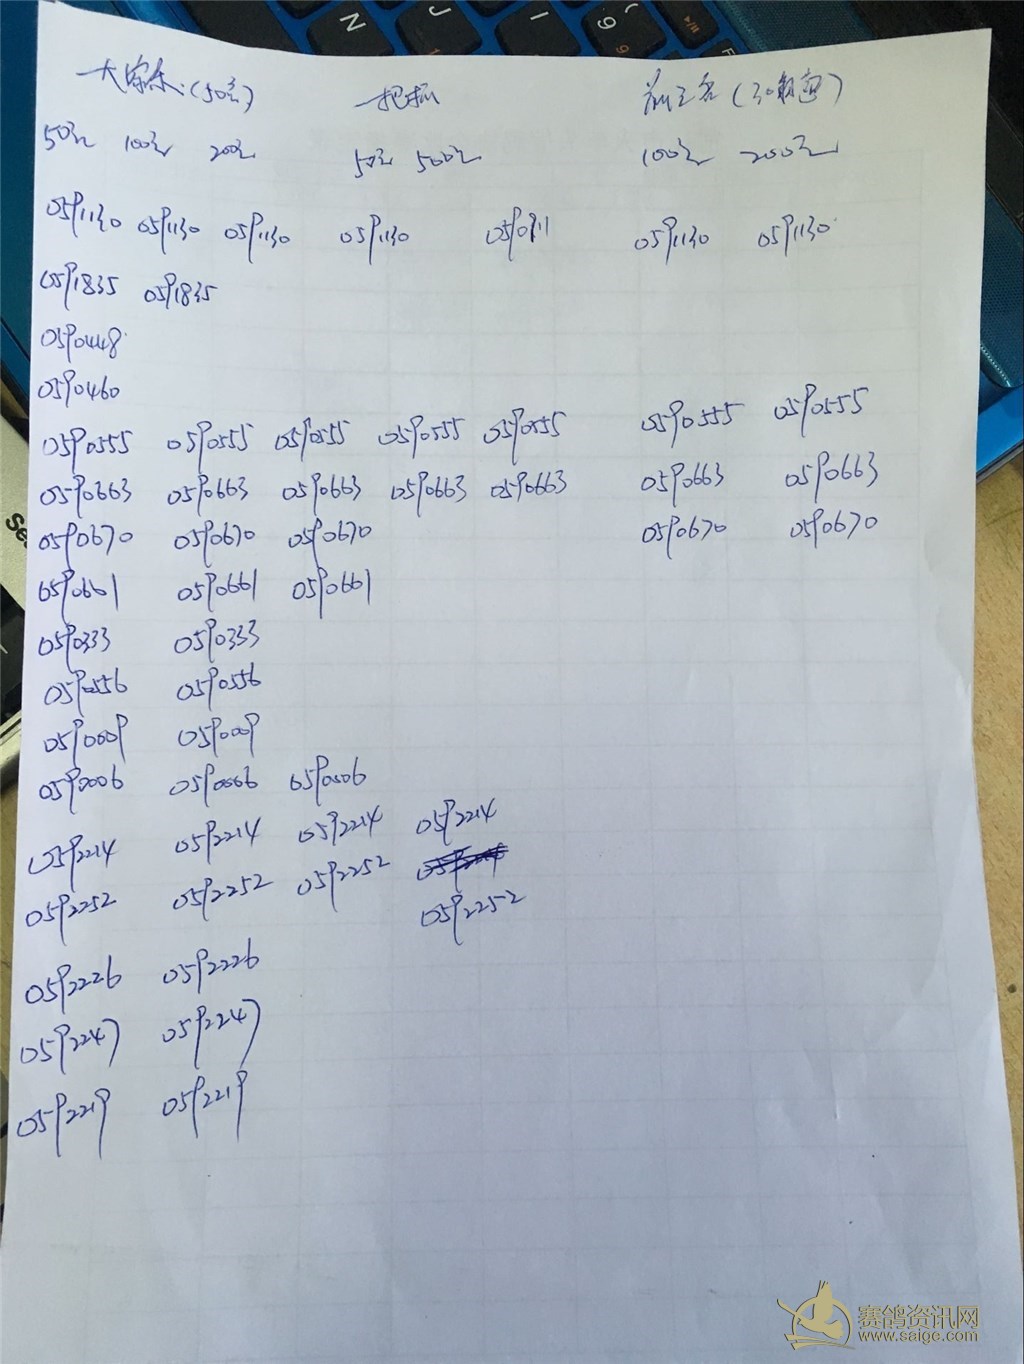 大家乐:(50名) 一把抓
50元 100元 200元 50元 500元 100元 200元
0591130 0591130 0591130 0591130 0590711 0591130 0591130
05911835 05911835
0590448
0590460
0590555 0590555 0590555 0590555 0590555 0590555 0590555
0590663 0590663 0590663 0590663 0590663 0590663 0590663
0590670 0590670 0590670 0590670 0590670
0590661 0590661 0590661
0590333 0590333
0590556 0590556
0590009 0590009
0592006 0590006 0590006
0592214 0592214 0592214 0592214
0592252 0592252 0592252
0592252
0592226 0592226
0592247 0592247
0592219 0592219
赛鸽资讯网
www.saige.com